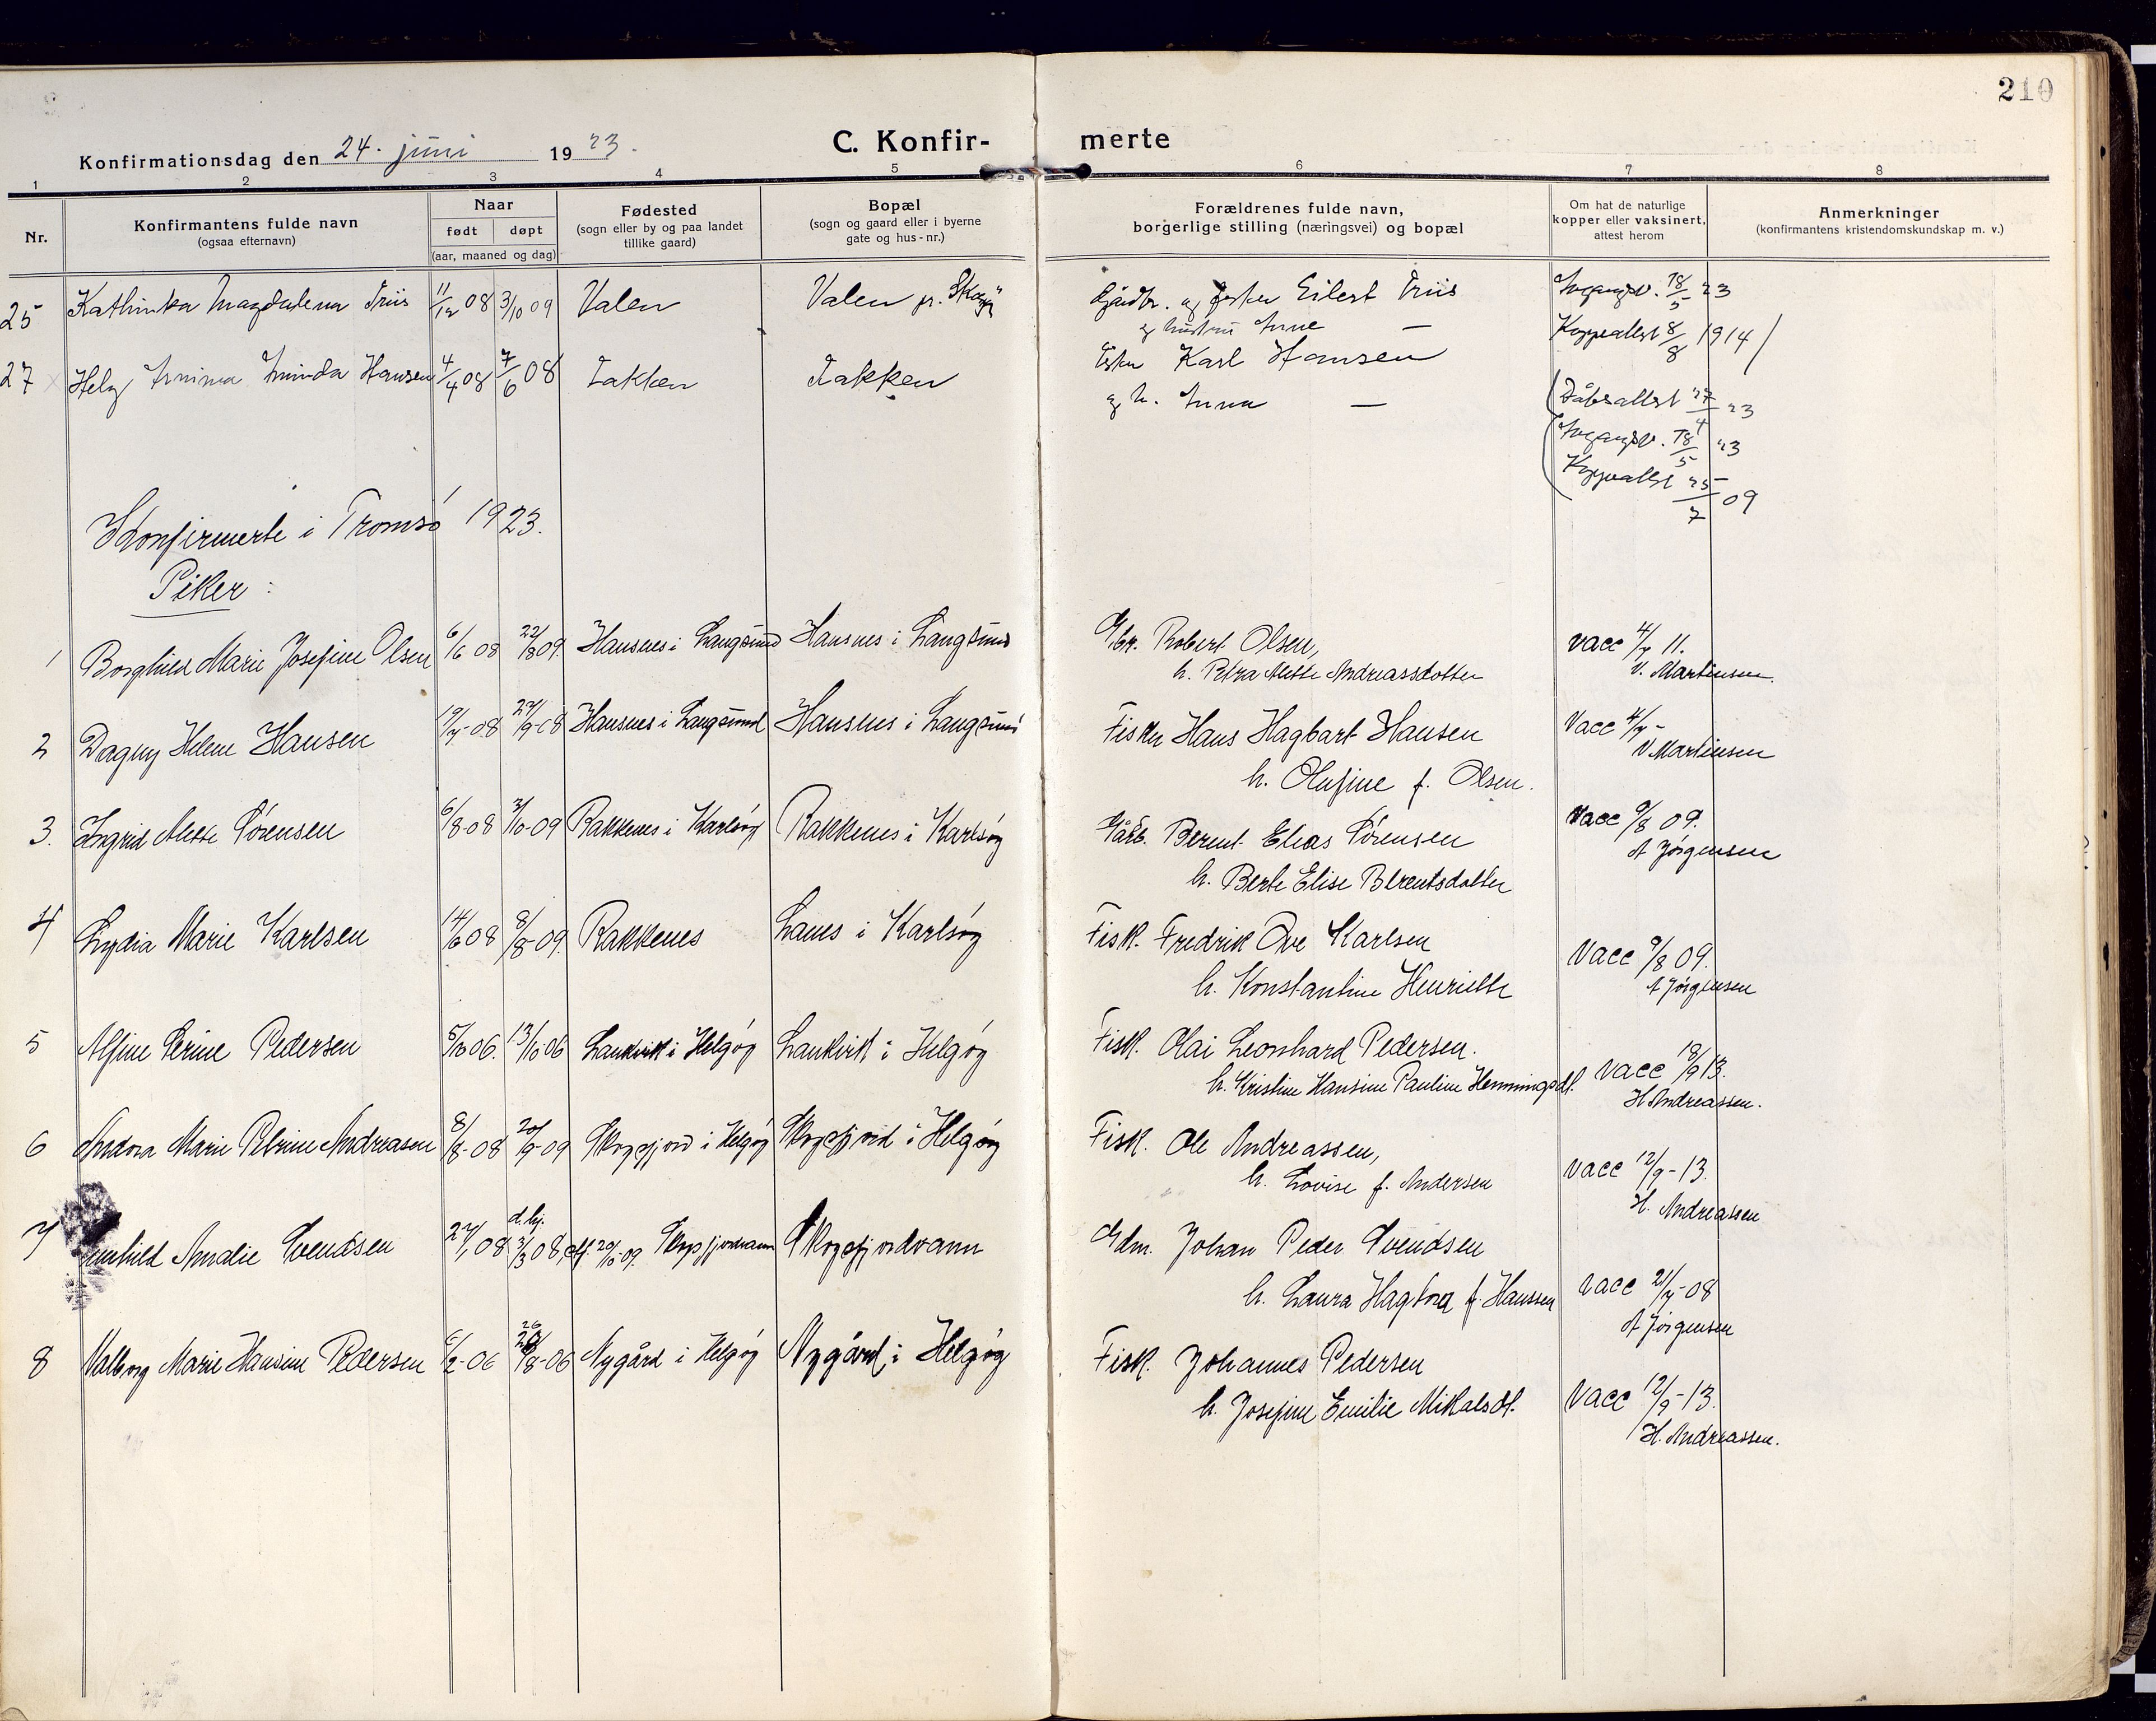 210
Konfirmationsdag den 24. juni 1923.
C. Konfir- merte
1 2 3 4 5 6 7 8
Nr.
Konfirmantens fulde navn
(ogsaa efternavn)
Naar
født døpt
(aar, maaned og dag)
Fødested
(sogn eller by og paa landet
tillike gaard)
Bopæl
(sogn og gaard eller i byerne
gate og hus-nr.)
Forældrenes fulde navn,
borgerlige stilling (næringsvei) og bopæl
Om hat de naturlige
kopper eller vaksinert,
attest herom
Anmerkninger
(konfirmantens kristendomskundskap m. v.)
25 Kathinka Magdalena Friis 11/12 08 3/10 09 Valen Valen pr. Gårdbr. og fisker Eilert Friis 18/5 23
og hustru Anne — Koppeattest 8/8 1914
27 Helg Hansen 4/4 08 7/6 08 Takken Takken Fisker Karl Hansen
og h. Anna — Dåbsattest 27/4 23
18/5 23
Koppeattest 25/7 09
Konfirmerte i Tromsø 1923.
Piker:
1 Borghild Marie Josefine Olsen 6/6 08 22/8 09. Hansnes i Langsund Hansnes i Langsund Gbr. Robert Olsen, vacc 4/7 11.
h. Petra Mette Andreassdotter V. Martinsen.
2 Dagny Helene Hansen 19/7-08 27/9-08 Hansnes i Langsund Hansnes i Langsund Fisker Hans Hagbart Hansen Vacc 4/7-
h. Olufine f. Olsen. V Martinsen
3. Ingrid Mette Sørensen 6/8-08 3/10-09 Rakkenes i Karlsøy Rakkenes i Karlsøy Gårb. Berent Elias Sørensen Vacc 9/8 09.
h. Berte Elise Berentsdatter A Jørgensen
4 Lydia Marie Karlsen 14/6 08 8/8-09. Rakkenes Lanes i Karlsøy Fisk. Fredrik Ove Karlsen Vacc 9/8 09.
h. Konstantine Henriette A Jørgensen
5 Alfine Serine Pedersen 5/10 06. 13/10 06 Lankvik i Helgøy Lankvik i Helgøy Fisk. Olai Leonhard Pedersen. vacc 18/9 13.
h. Kristine Hansine Pauline Henningsdt. H Andreassen.
6 Andora Marie Petrine Andreasen 8/8-08 20/9-09 Skogsfjord i Helgøy Skogsfjord i Helgøy Fisk. Ole Andreassen, vacc 12/9-13.
h. Lovise f. Andersen H. Andreassen
7 Amalie Svendsen 27/1 08 d. hj. 3/3 08, stf. 20/10-09. Skogsfjordvann Skogsfjordvann Gdm. Johan Peder Svendsen vacc 21/7-08
h. Laura Hagbora f. Hanssen A Jørgensen
8 Valborg Marie Hansine Pedersen 6/2-06 26/8-06 Nygård i Helgøy Nygård i Helgøy Fisk. Johannes Pedersen Vacc 12/9-13.
h. Josefine Emilie Mikalsdt. H. Andreassen.